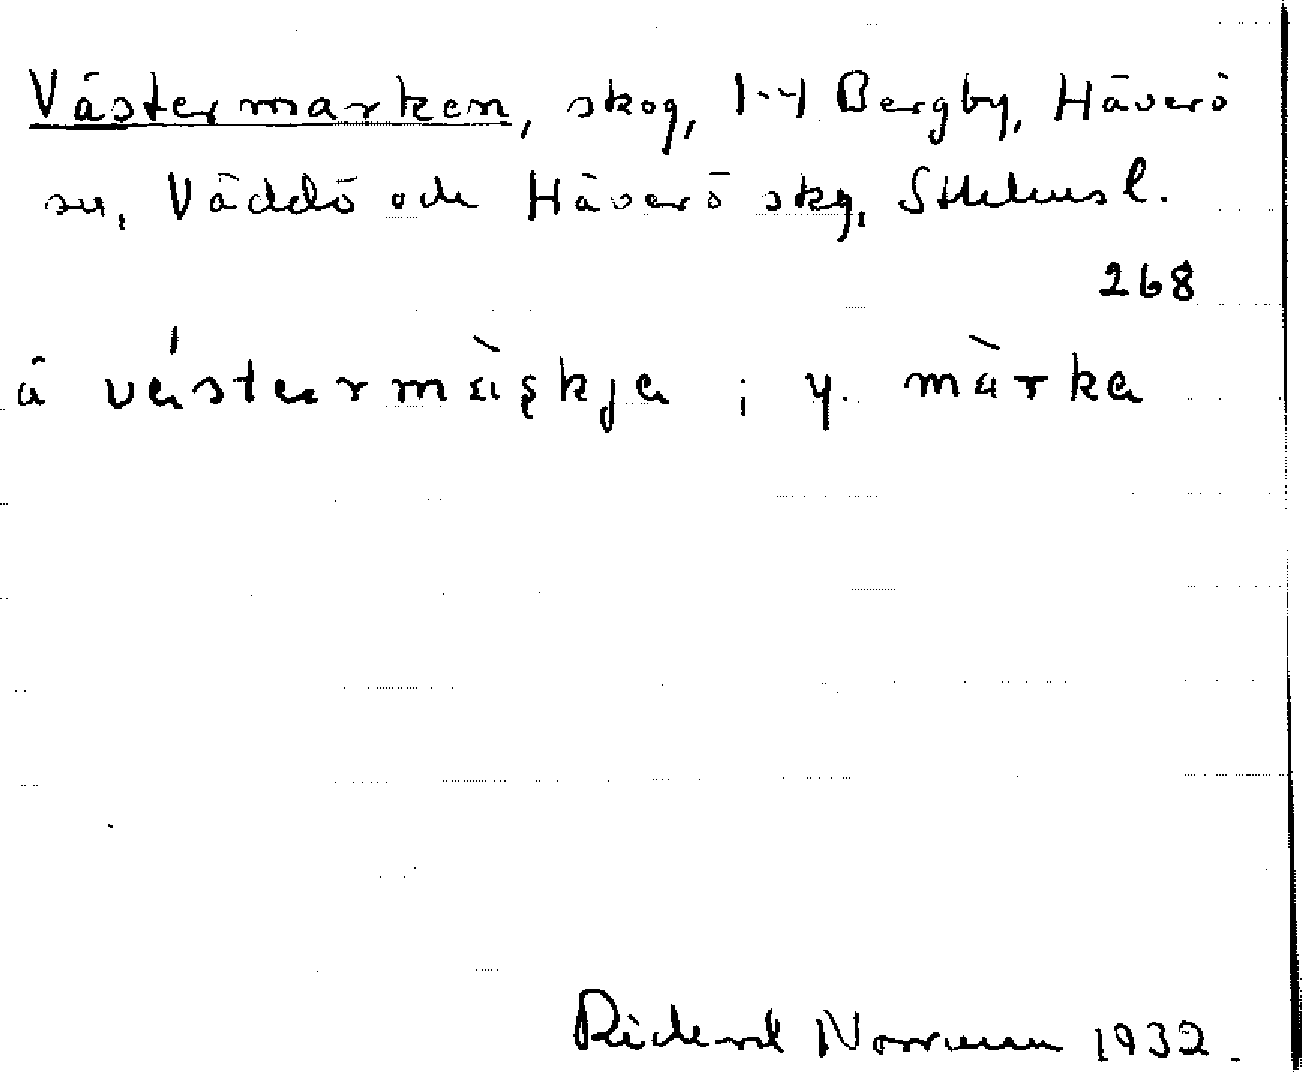 Västermarken, skog, 1-4 Bergby, Häverö
sn, Väddö och Häverö skg, Sthlms l.
268
å västermàrkja ; y. màrka
Rickard Norrman 1932.